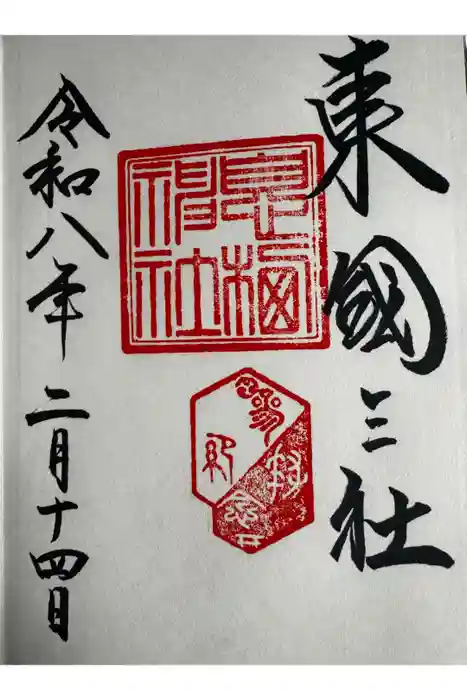 東國三社
息栖
神社
令和八年二月十四日